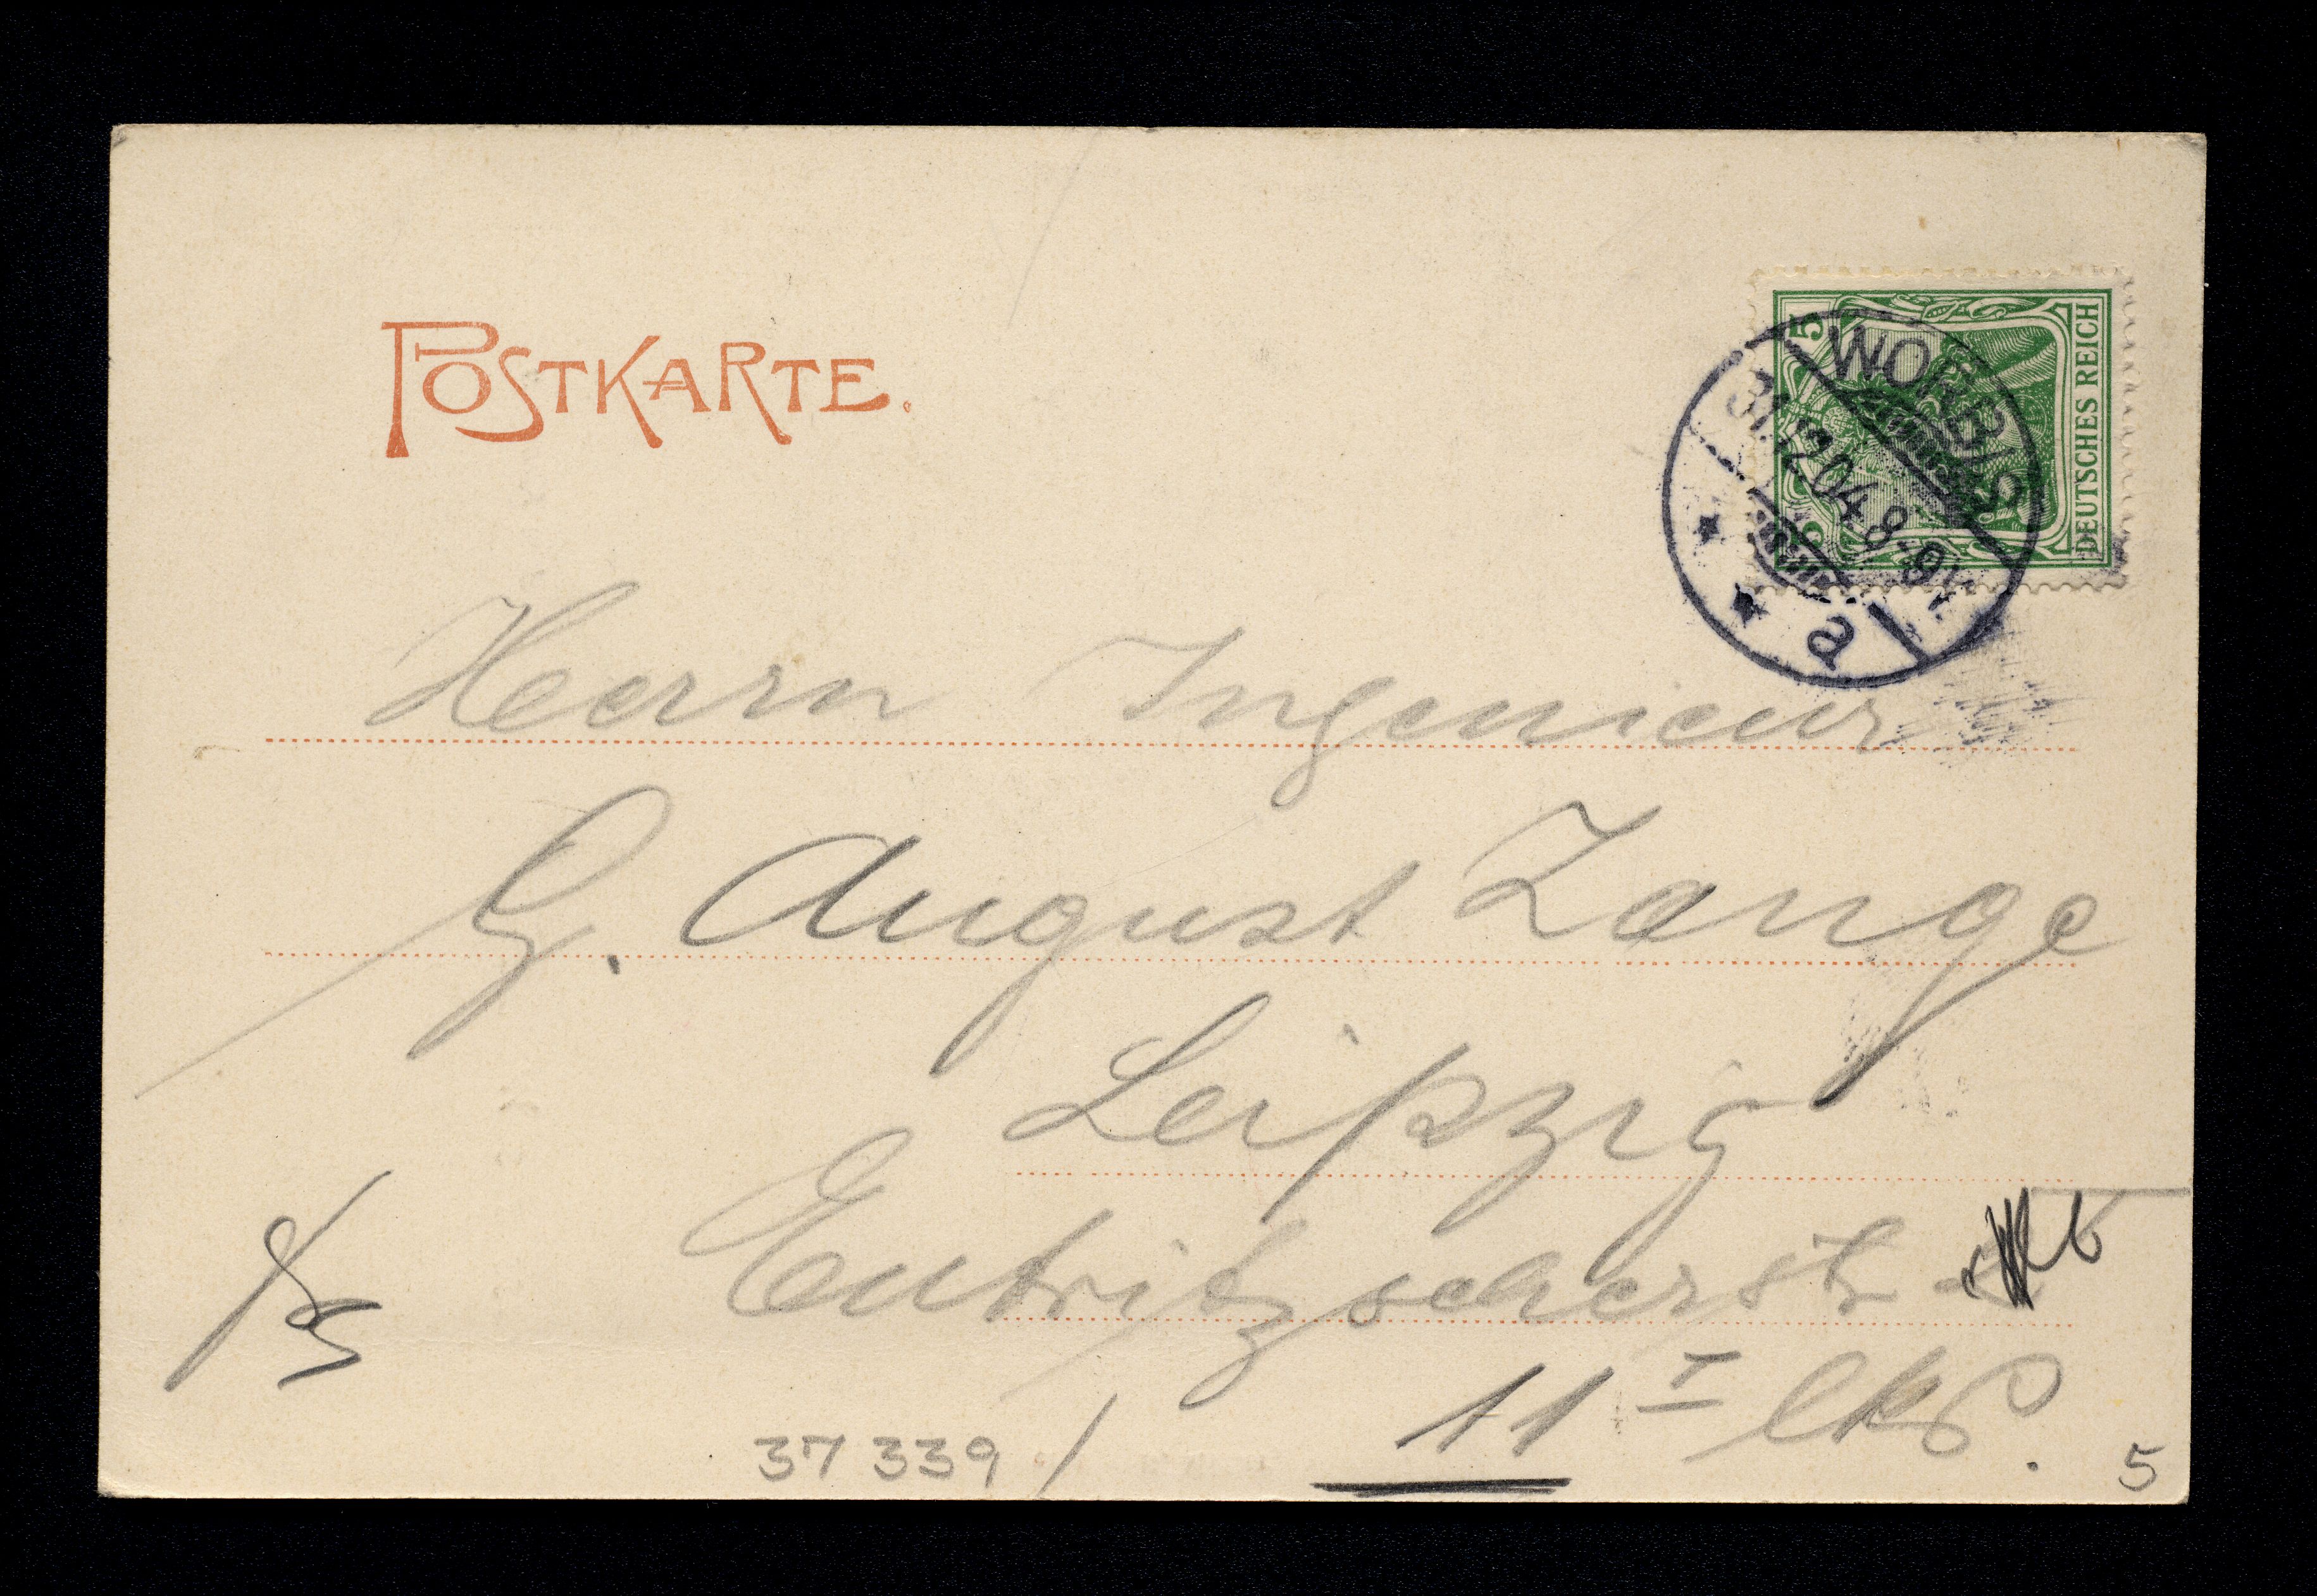 POSTKARTE.
5 5
DEUTSCHES REICH
WORBIS
31.12.04.8-9V.
* * a
Herrn Ingenieur
G. August Zange
Leipzig
Eutritzscherst
11 I lks.
37 339 /
5